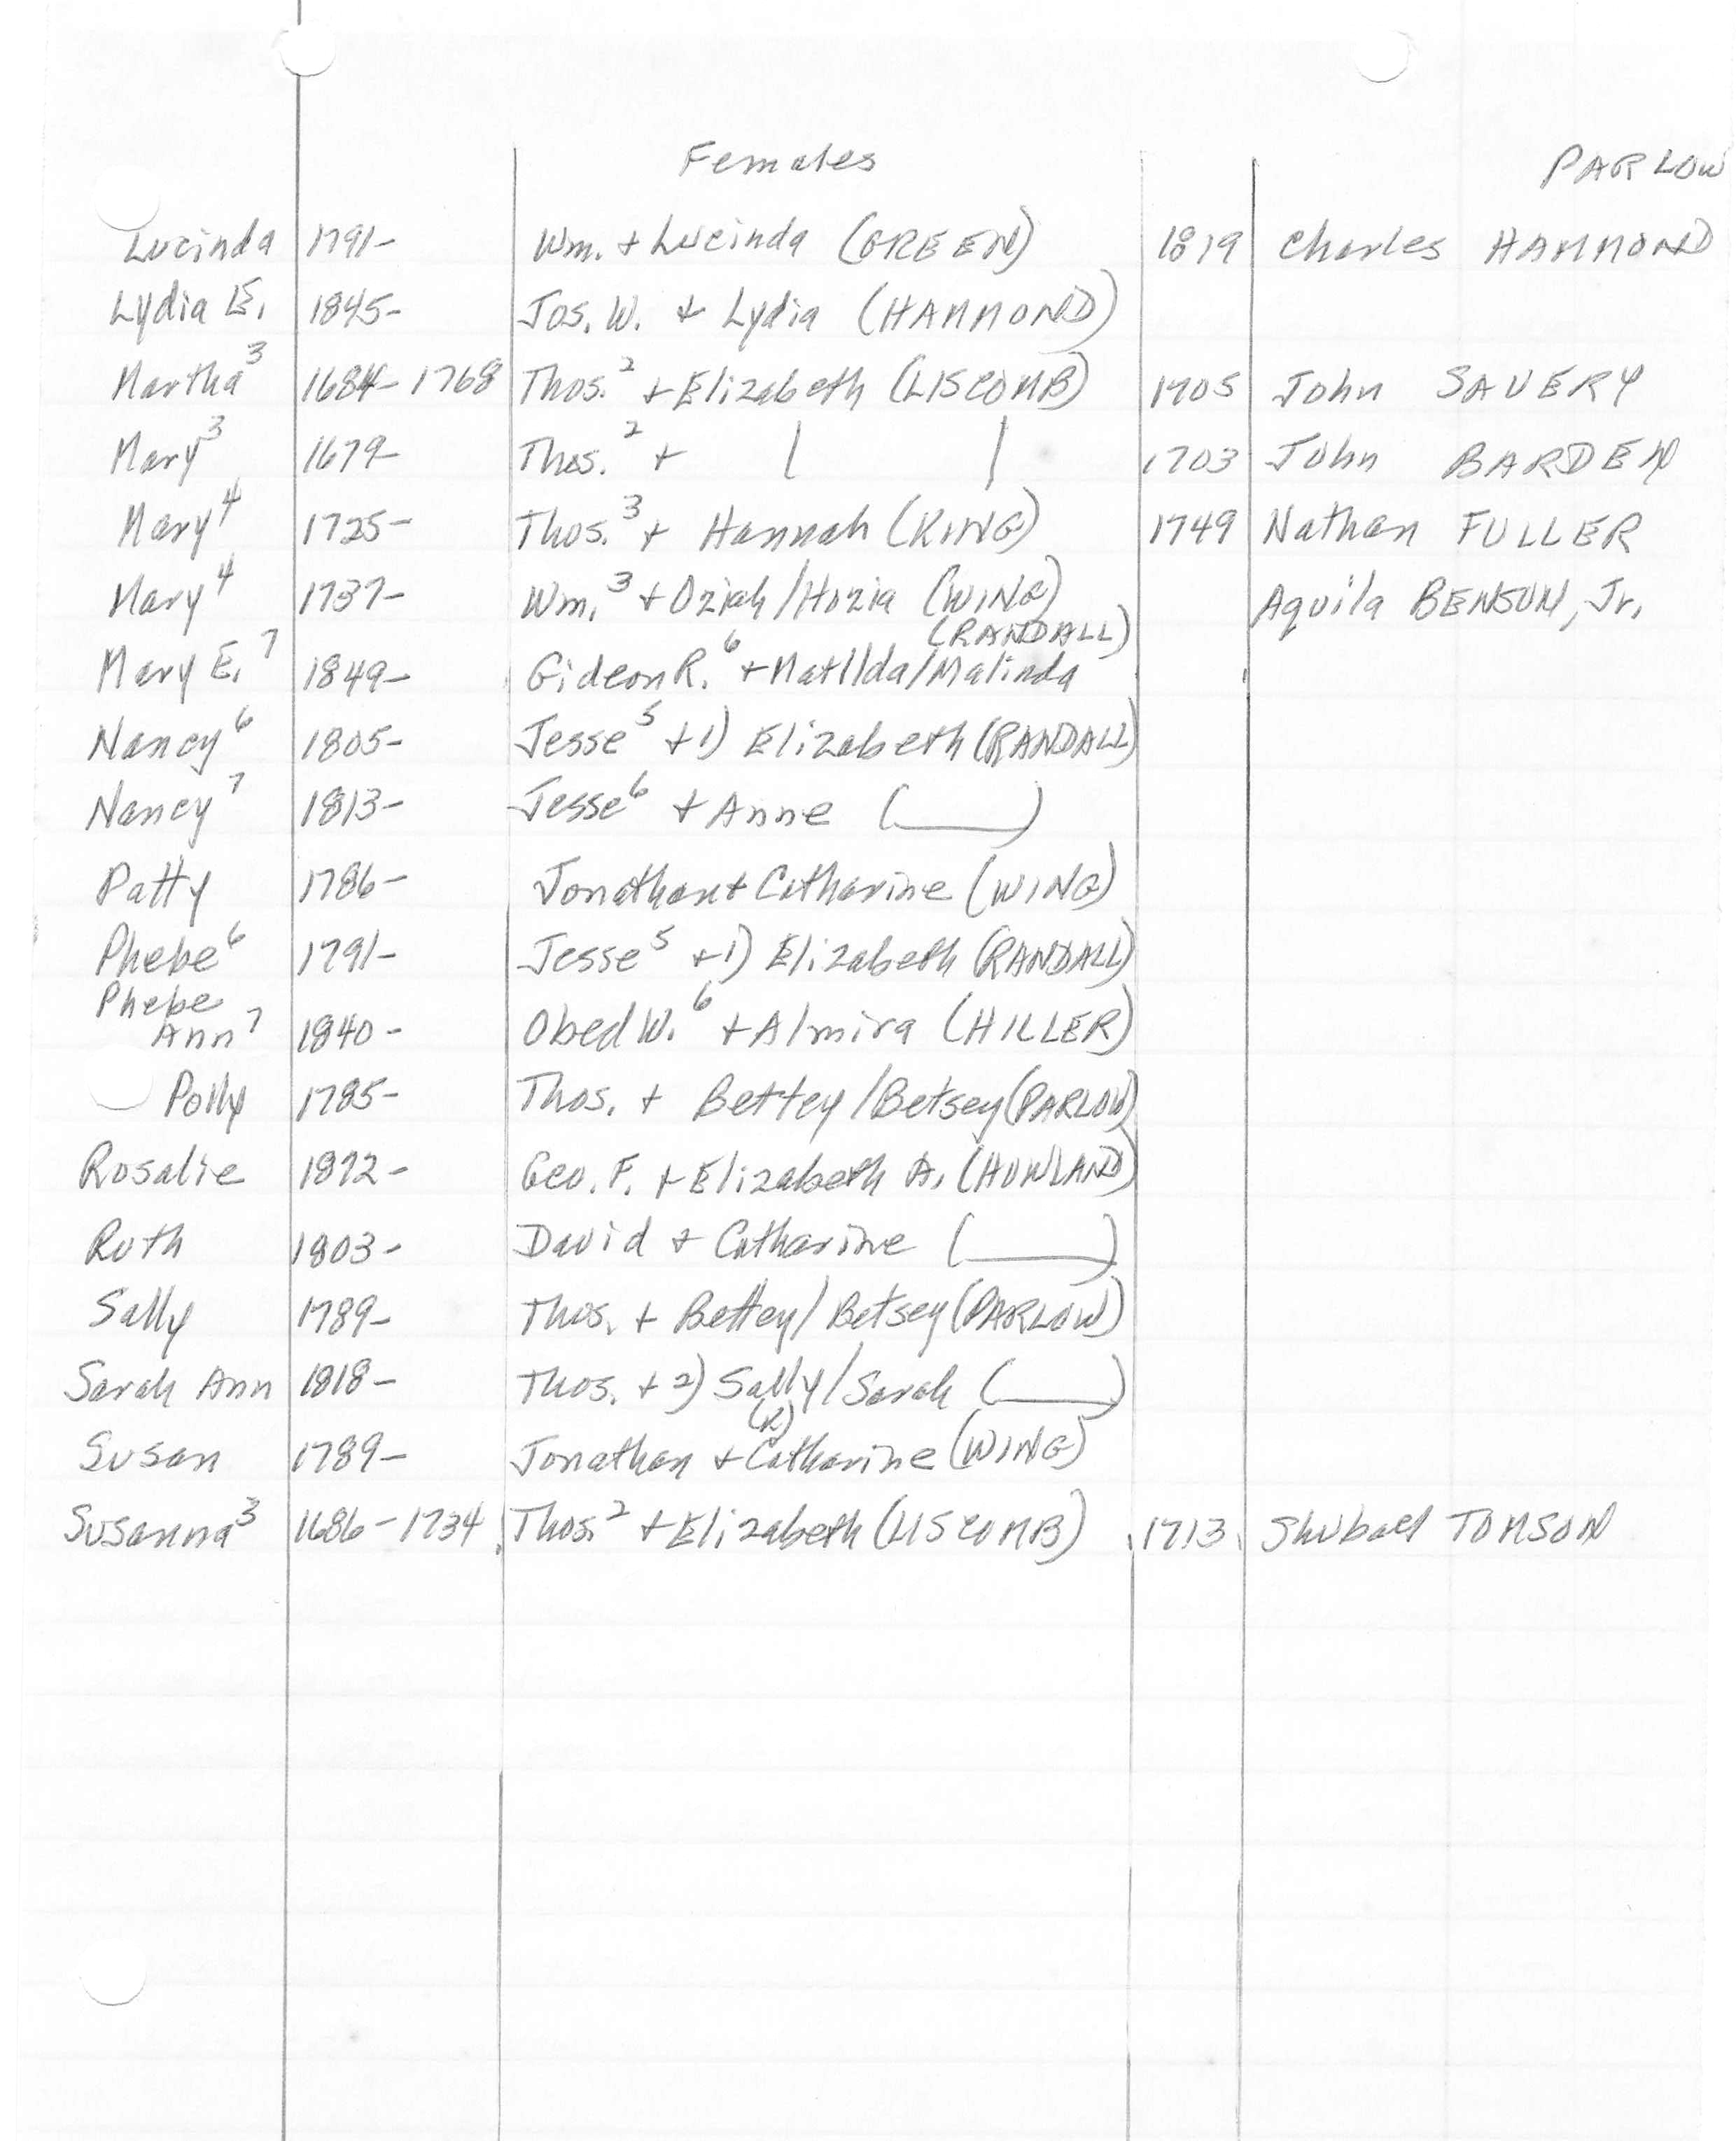 Females PARLOW
Lucinda 1791- Wm. + Lucinda (GREEN) 1819 Charles HAMMOND
Lydia E. 1845- Jos. W. + Lydia (HAMMOND)
Martha³ 1684-1768 Thos.² + Elizabeth (LISCOMB) 1705 John SAVERY
Mary³ 1679- Thos.² + | | 1703 John BARDEN
Mary⁴ 1725- Thos.³ + Hannah (RING) 1749 Nathan FULLER
Mary⁴ 1737- Wm.³ + Oziah/Hozia (WING) Aquila BENSON, Jr.
(RANDALL)
Mary E.⁷ 1849- Gideon R.⁶ + Matilda/Malinda
Nancy⁶ 1805- Jesse⁵ + 1) Elizabeth (RANDALL)
Nancy⁷ 1813- Jesse⁶ + Anne (____)
Patty 1786- Jonathan + Catharine (WING)
Phebe⁶ 1791- Jesse⁵ + 1) Elizabeth (RANDALL)
Phebe
Ann⁷ 1840- Obed W.⁶ + Almira (HILLER)
Polly 1785- Thos. + Bettey/Betsey (PARLOW)
Rosalie 1872- Geo. F. + Elizabeth A. (HOWLAND)
Ruth 1803- David + Catharine (____)
Sally 1789- Thos. + Bettey/Betsey (PARLOW)
Sarah Ann 1818- Thos. + 2) Sally/Sarah (____)
(K)
Susan 1789- Jonathan + Catharine (WING)
Susanna³ 1686-1734 Thos.² + Elizabeth (LISCOMB) 1713 Shubael TOMSON